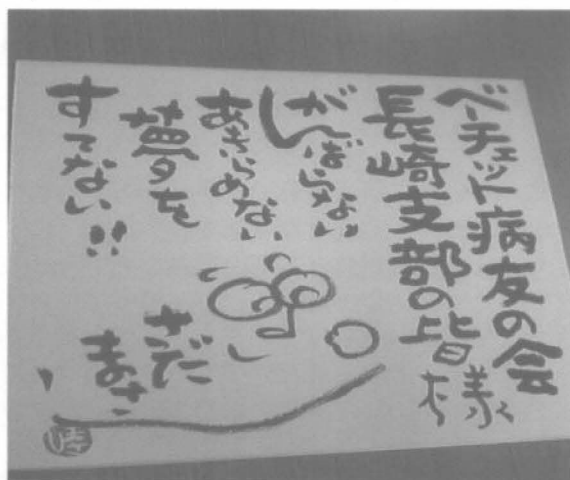 ベーチェット病友の会
長崎支部の皆様
がんばらない
あきらめない
夢を
すてない!!
さだ
まさし